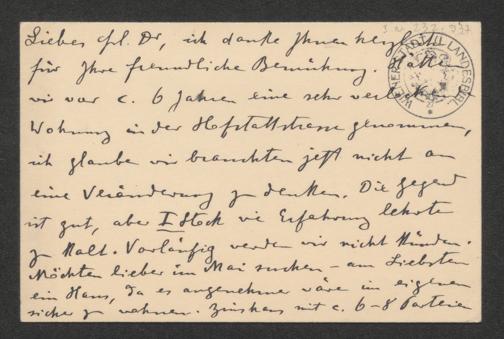 I.N. 232.737
WIENER STADT U. LANDESBIBL.
Liebes frl. Dr, ich danke Ihnen herzlich
für Ihre freundliche Bemühung. Hätten
wir vor c. 6 Jahren eine sehr
Wohnung in der Hofstattstrasse genommen,
ich glaube wir brauchten jetzt nicht an
eine Veränderung zu denken. Die Gegend
ist gut, aber I Stock wie Erfahrung lehrte
zu kalt. Vorläufig werden wir nicht künden.
Möchten lieber im Mai suchen – am Liebsten
ein Haus, da es angenehmer wäre im eigenen
sicher zu wohnen. Zinshaus mit c. 6–8 Parteien